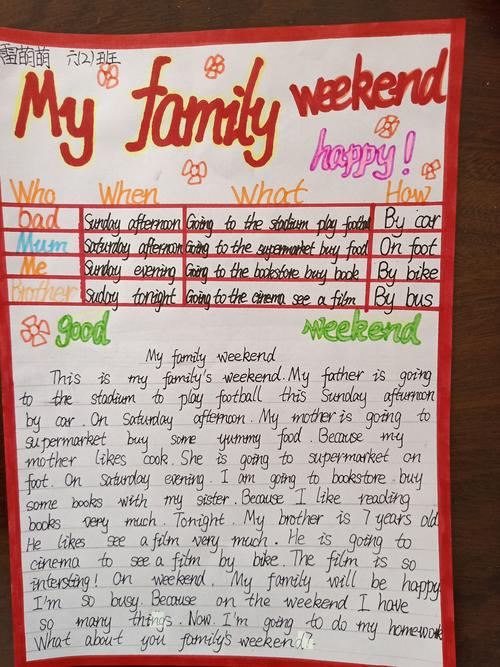 雷萌萌 六(2)班
My family weekend
happy!
Who When What How
Dad Sunday afternoon Going to the stadium play football By car
Mum Saturday afternoon Going to the supermarket buy food On foot
Me Sunday evening Going to the bookstore buy book By bike
Brother Suday tonight Going to the cinema see a film By bus
good weekend
My family weekend
This is my family's weekend. My father is going
to the stadium to play football this Sunday afturnoon
by car. On Saturday afternoon. My mother is going to
supermarket buy some yummy food. Because my
mother likes cook. She is going to supermarket on
foot. On Saturday evening. I am going to bookstore buy
some books with my sister. Because I like reading
books very much. Tonight. My brother is 7 years old.
He likes see a film very much. He is going to
cinema to see a film by bike. The film is so
intersting! On weekend. My family will be happy
I'm so busy. Because on the weekend I have
so many things. Now. I'm going to do my homework
What about you family's weekend?